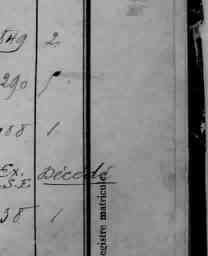 849 2
290
88 1
Ex. Décédé
S.E.
38 1
egistre matricule